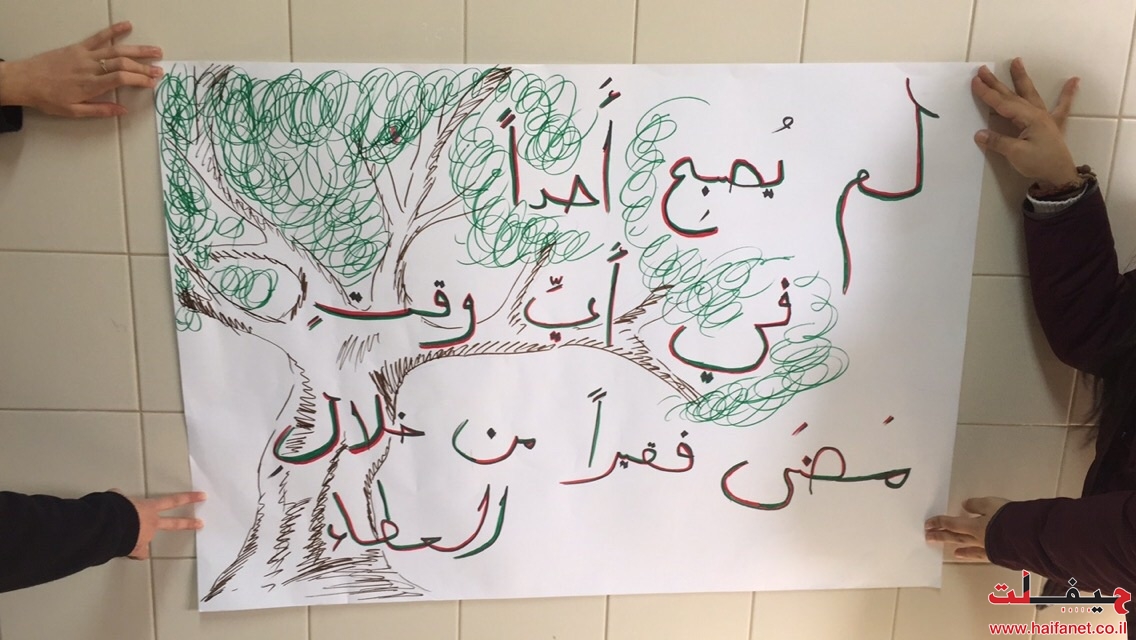 لم يُصبِح أحداً
في أيِّ وقتٍ
مَضَى فقيراً من خلالِ
العطاءِ
حيفا نت
www.haifanet.co.il